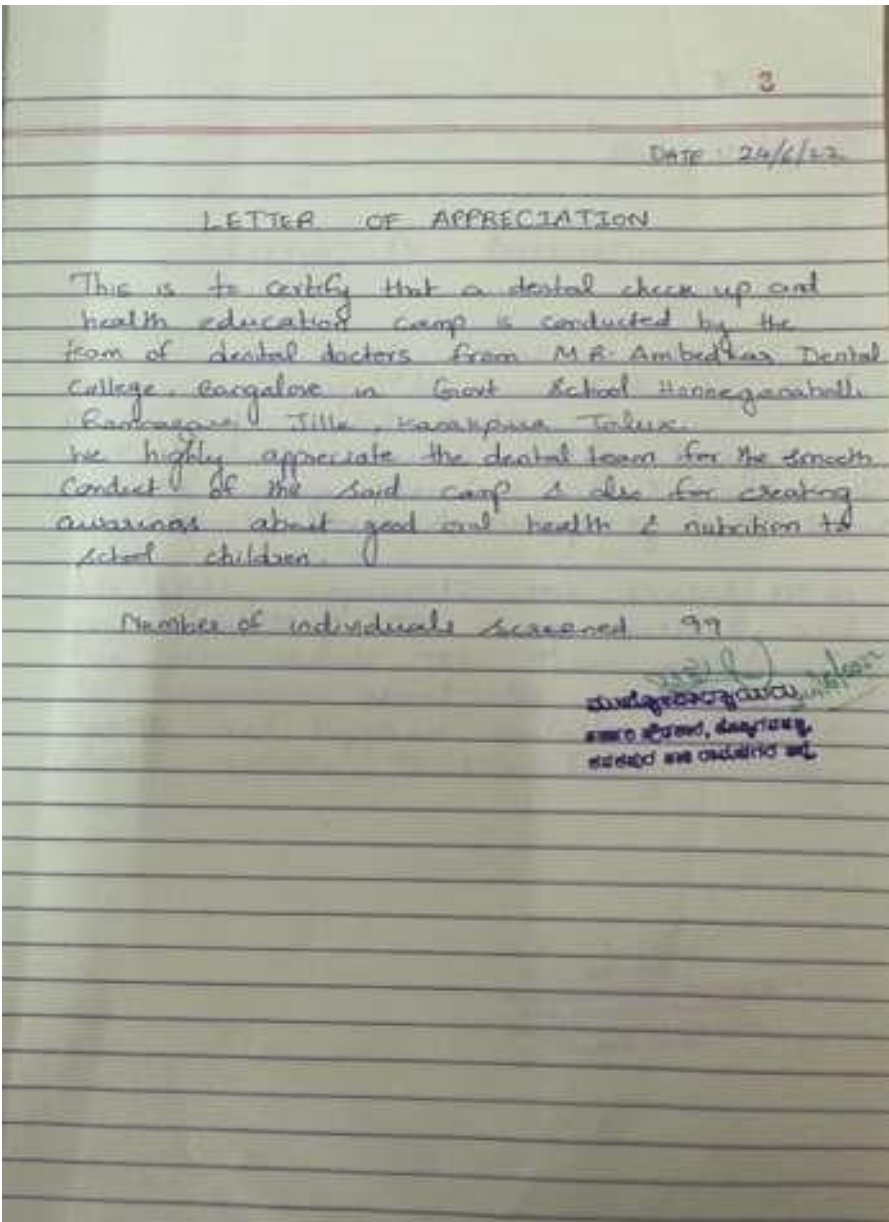 3
DATE : 24/6/22
LETTER OF APPRECIATION
This is to certify that a dental check up and
health education camp is conducted by the
team of dental doctors from M R Ambedkar Dental
College, Bangalore in Govt School Honneganahalli
Ramnagara Jilla, Kanakpura Taluk.
We highly appreciate the dental team for the smooth
Conduct of the said camp & also for creating
awarness about good oral health & nutrition to
school children.
Number of individuals screened 99
ಮುಖ್ಯೋಪಾಧ್ಯಾಯರು
ಸರ್ಕಾರಿ ಪ್ರೌಢಶಾಲೆ,
ಕನಕಪುರ ತಾ॥ ರಾಮನಗರ ಜಿಲ್ಲೆ